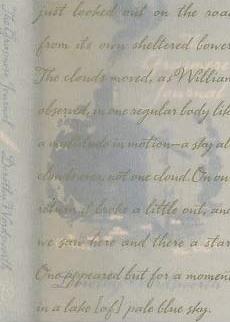 just looked out on the road
from its own sheltered bower
The clouds moved, as William
observed, in one regular body like
a multitude in motion—a sky all
clouds over, not one cloud. On our
return it broke a little out, and
we saw here and there a star.
One appeared but for a moment
in a lake [of] pale blue sky.
The Grasmere Journal
Dorothy Wordsworth
Grasmere
Journal
Dorothy Wordsworth